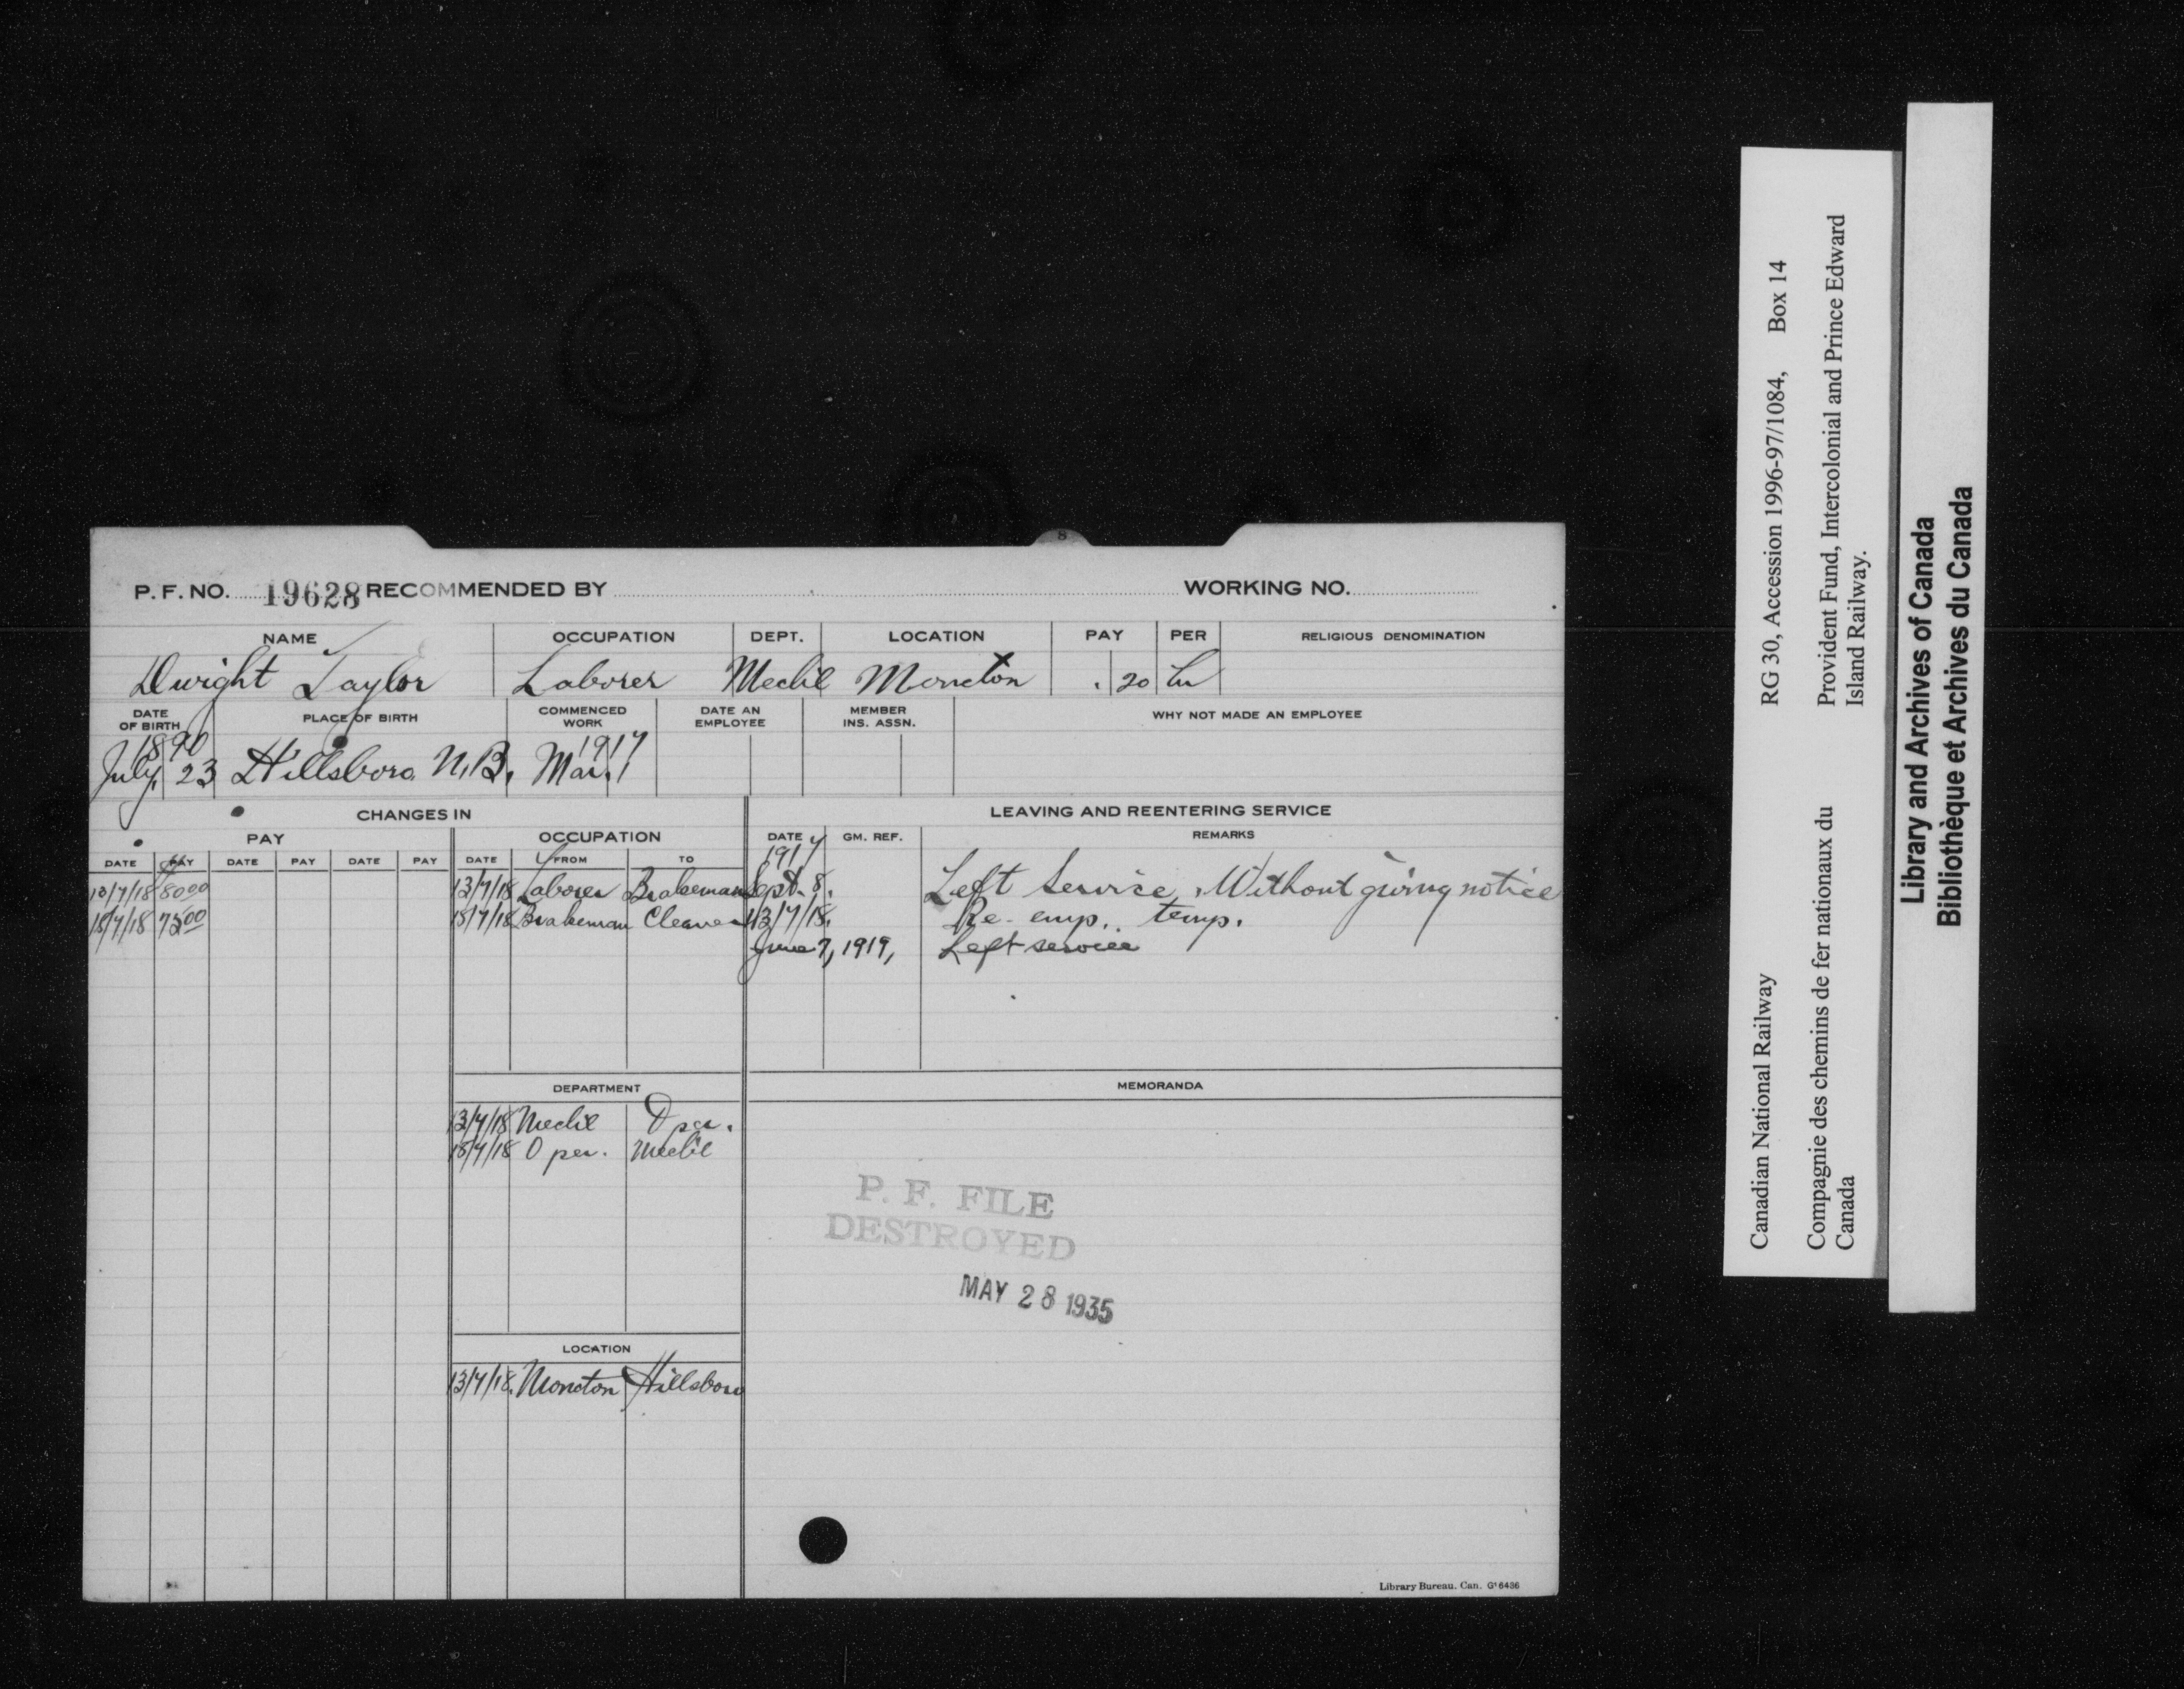 8
P. F. NO. 19628 RECOMMENDED BY WORKING NO.
NAME OCCUPATION DEPT. LOCATION PAY PER RELIGIOUS DENOMINATION
Dwight Taylor Laborer Mechl Moncton .20 hr
DATE OF BIRTH PLACE OF BIRTH COMMENCED WORK DATE AN EMPLOYEE MEMBER INS. ASSN. WHY NOT MADE AN EMPLOYEE
1890 1917
July 23 Hillsboro N.B. Mar. 1
CHANGES IN LEAVING AND REENTERING SERVICE
PAY OCCUPATION DATE GM. REF. REMARKS
DATE PAY DATE PAY DATE PAY DATE FROM TO 1917
13/7/18 80 00 13/7/18 Laborer Brakeman Sept. 8. Left Service. Without giving notice
18/7/18 75 00 18/7/18 Brakeman Cleaner 13/7/18. Re-emp. temp.
June 7, 1919, Left service
DEPARTMENT MEMORANDA
13/7/18 Mechl Oper.
18/7/18 Oper. Mechl
P. F. FILE
DESTROYED
MAY 28 1935
LOCATION
13/7/18. Moncton Hillsboro
Library Bureau. Can. G¹6436
Canadian National Railway RG 30, Accession 1996-97/1084, Box 14
Compagnie des chemins de fer nationaux du Provident Fund, Intercolonial and Prince Edward
Canada Island Railway.
Library and Archives of Canada
Bibliothèque et Archives du Canada